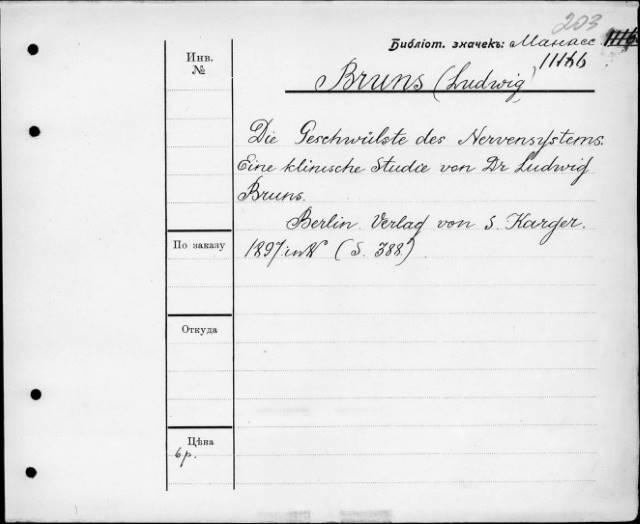 203
Библіот. значекъ: Манасс.
Инв.
№
Bruns (Ludwig)
Die Geschwülste des Nervensystems.
Eine klinische Studie von Dr Ludwig
Bruns.
Berlin. Verlag von S. Karger.
По заказу
1897. in N (S. 388.)
Откуда
Цѣна
6 р.